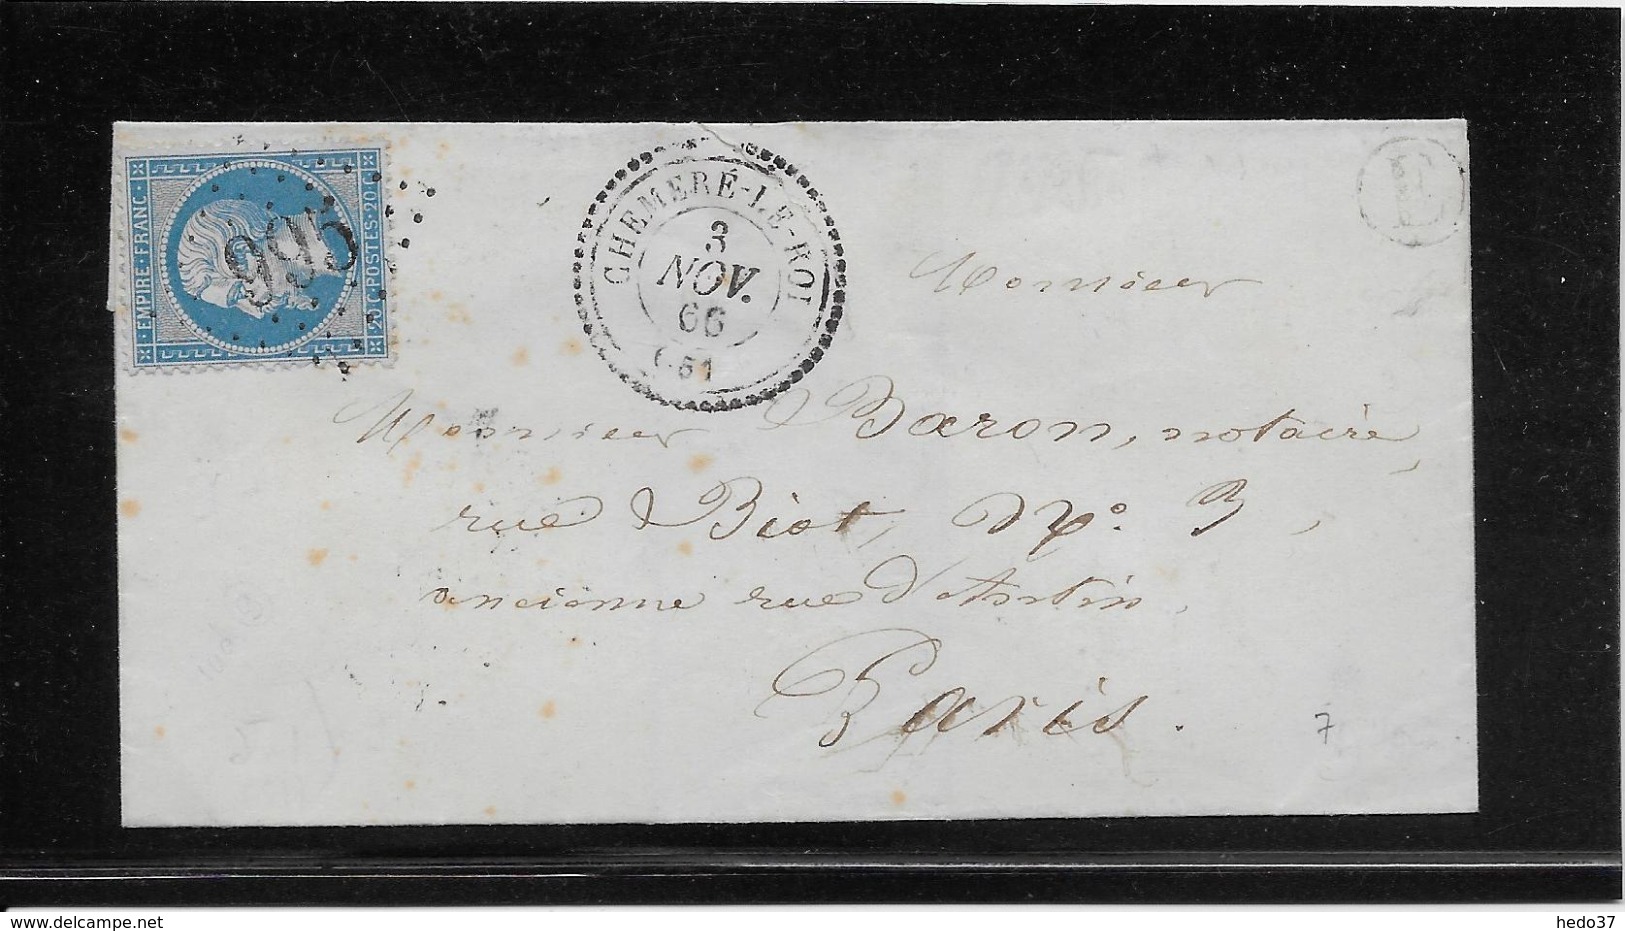 EMPIRE·FRANC·
20·C·POSTES·20·C·
995
CHEMERÉ-LE-ROI
3
NOV.
66
(51
Monsieur
Monsieur Baron, notaire
rue Biot, No. 3,
ancienne rue d'Antin,
Paris.
7
www.delcampe.net
hedo37